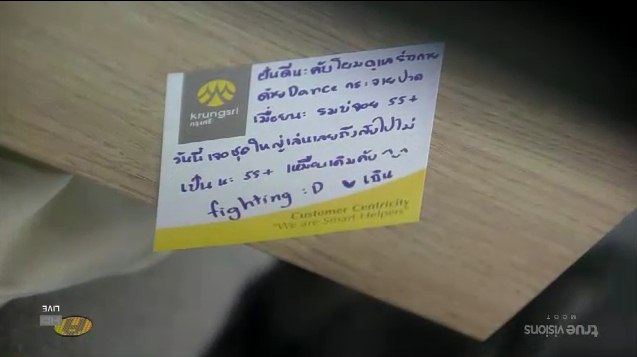 krungsri
กรุงศรี
ฝันดีนะคับโยมดูแลร่างกาย
ด้วย Dance กระจายปวด
เมื่อย นะ รมบ่จอย 55+
วันนี้เจอชุดใหญ่เล่นเลยถึงกับไปไม่
เป็น นะ 55+ เหมือนเดิมคับ
fighting :D ♥ เธิน
Customer Centricity
"We are Smart Helpers"
LIVE
true visions
MCOT